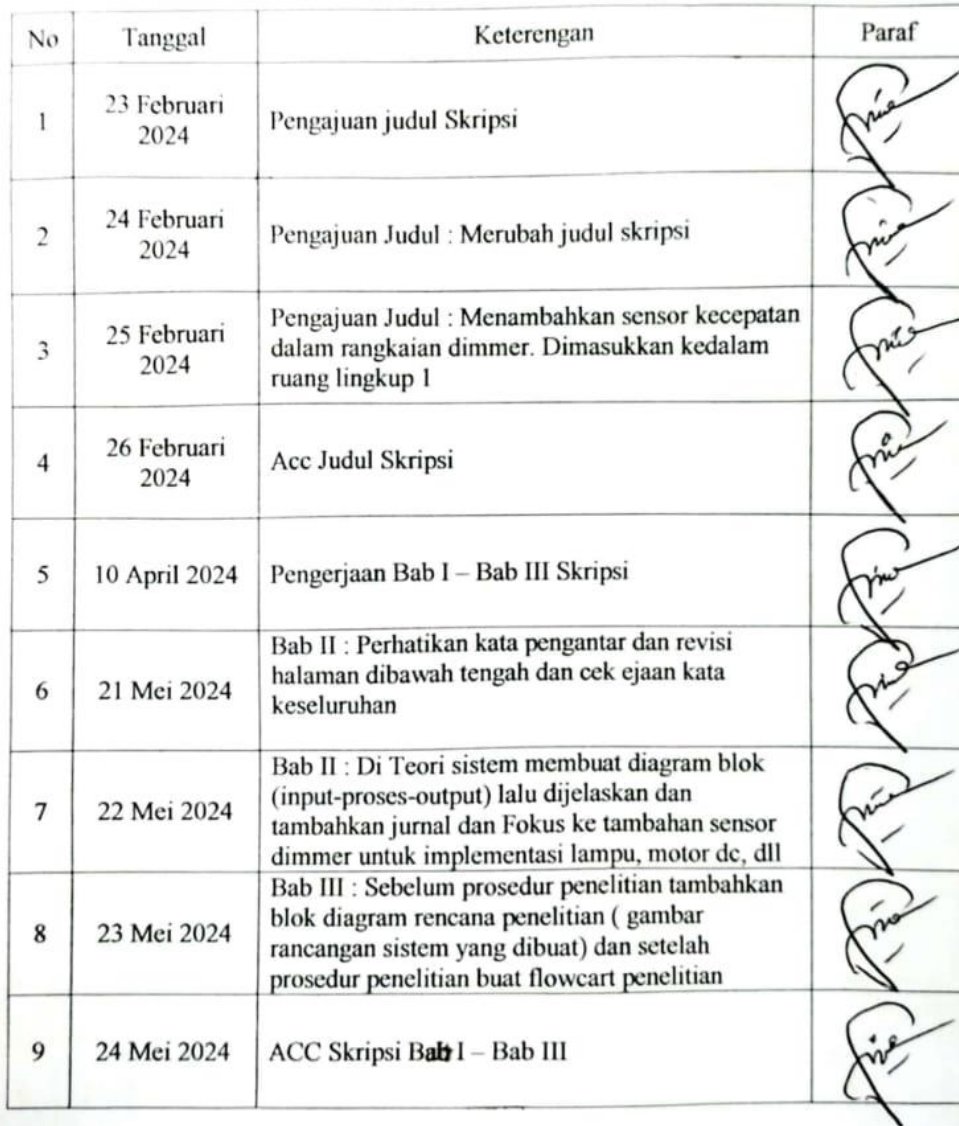 No Tanggal Keterengan Paraf
1 23 Februari 2024 Pengajuan judul Skripsi
2 24 Februari 2024 Pengajuan Judul : Merubah judul skripsi
3 25 Februari 2024 Pengajuan Judul : Menambahkan sensor kecepatan
dalam rangkaian dimmer. Dimasukkan kedalam
ruang lingkup 1
4 26 Februari 2024 Acc Judul Skripsi
5 10 April 2024 Pengerjaan Bab I – Bab III Skripsi
6 21 Mei 2024 Bab II : Perhatikan kata pengantar dan revisi
halaman dibawah tengah dan cek ejaan kata
keseluruhan
7 22 Mei 2024 Bab II : Di Teori sistem membuat diagram blok
(input-proses-output) lalu dijelaskan dan
tambahkan jurnal dan Fokus ke tambahan sensor
dimmer untuk implementasi lampu, motor dc, dll
8 23 Mei 2024 Bab III : Sebelum prosedur penelitian tambahkan
blok diagram rencana penelitian ( gambar
rancangan sistem yang dibuat) dan setelah
prosedur penelitian buat flowcart penelitian
9 24 Mei 2024 ACC Skripsi Bab I – Bab III